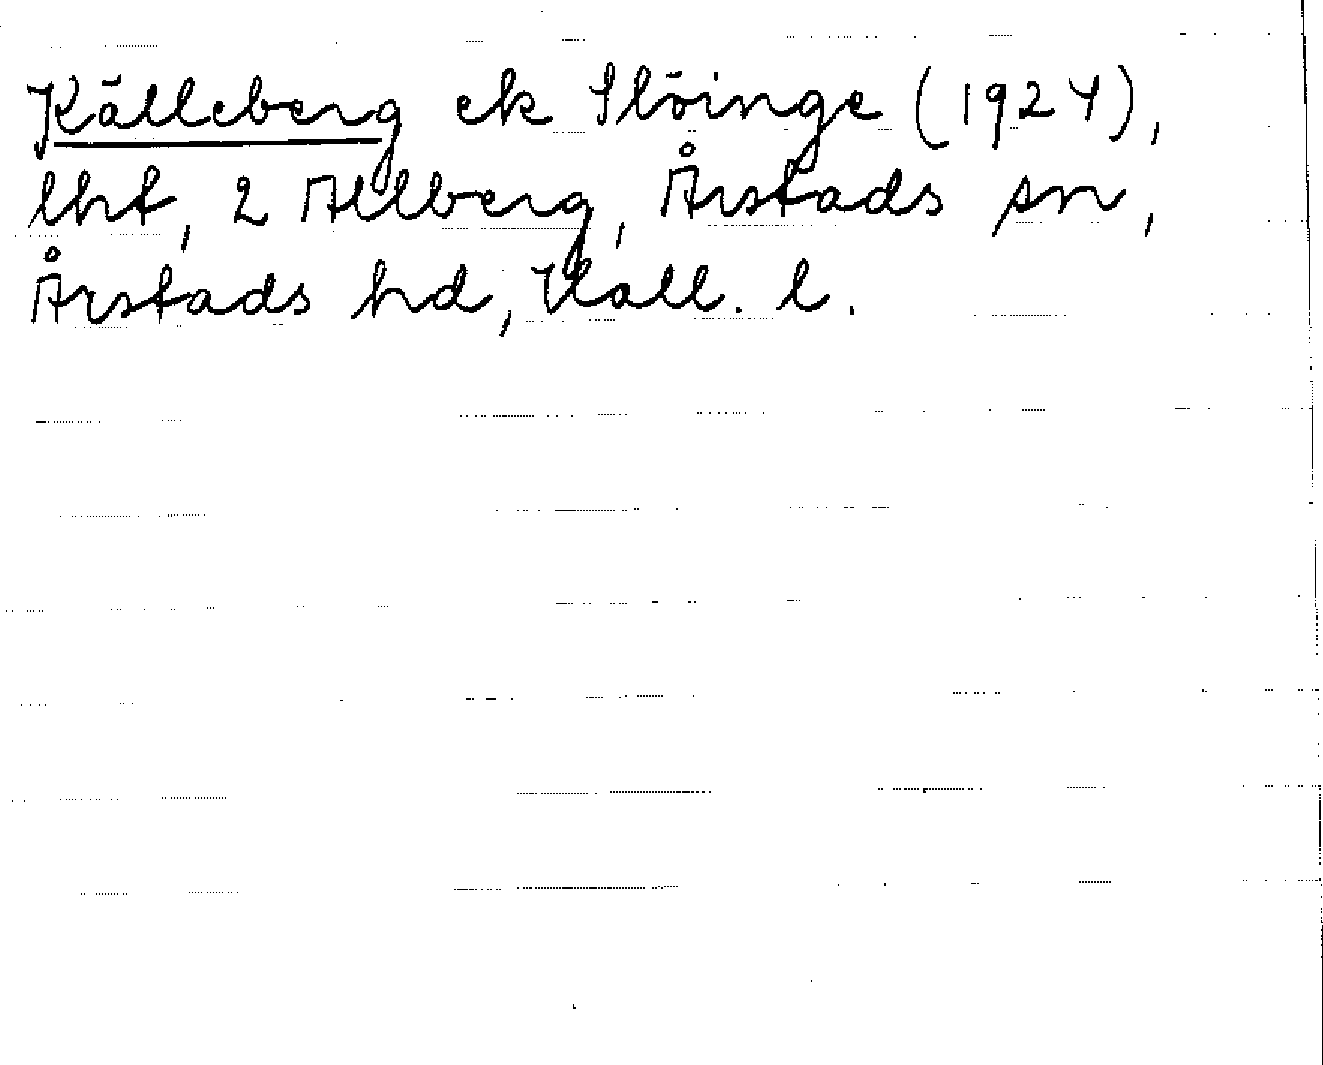 Källeberg ek Slöinge (1924),
lht, 2 Allberg, Årstads sn,
Årstads hd, Hall. l.